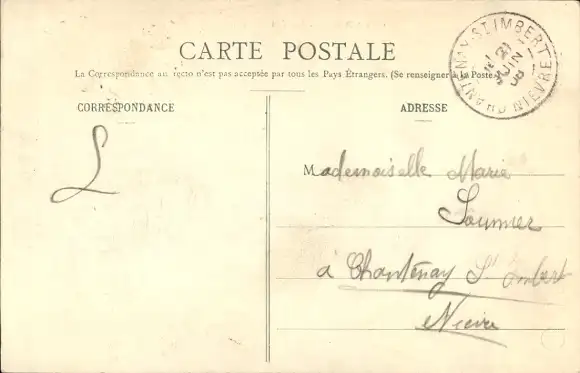 CARTE POSTALE
La Correspondance au recto n'est pas acceptée par tous les Pays Étrangers. (Se renseigner à la Poste)
CHANTENAY-ST IMBERT
21
JUIN
08
NIEVRE
CORRESPONDANCE
ADRESSE
L
Mademoiselle Marie
Saumier
à Chantenay St Imbert
Nièvre